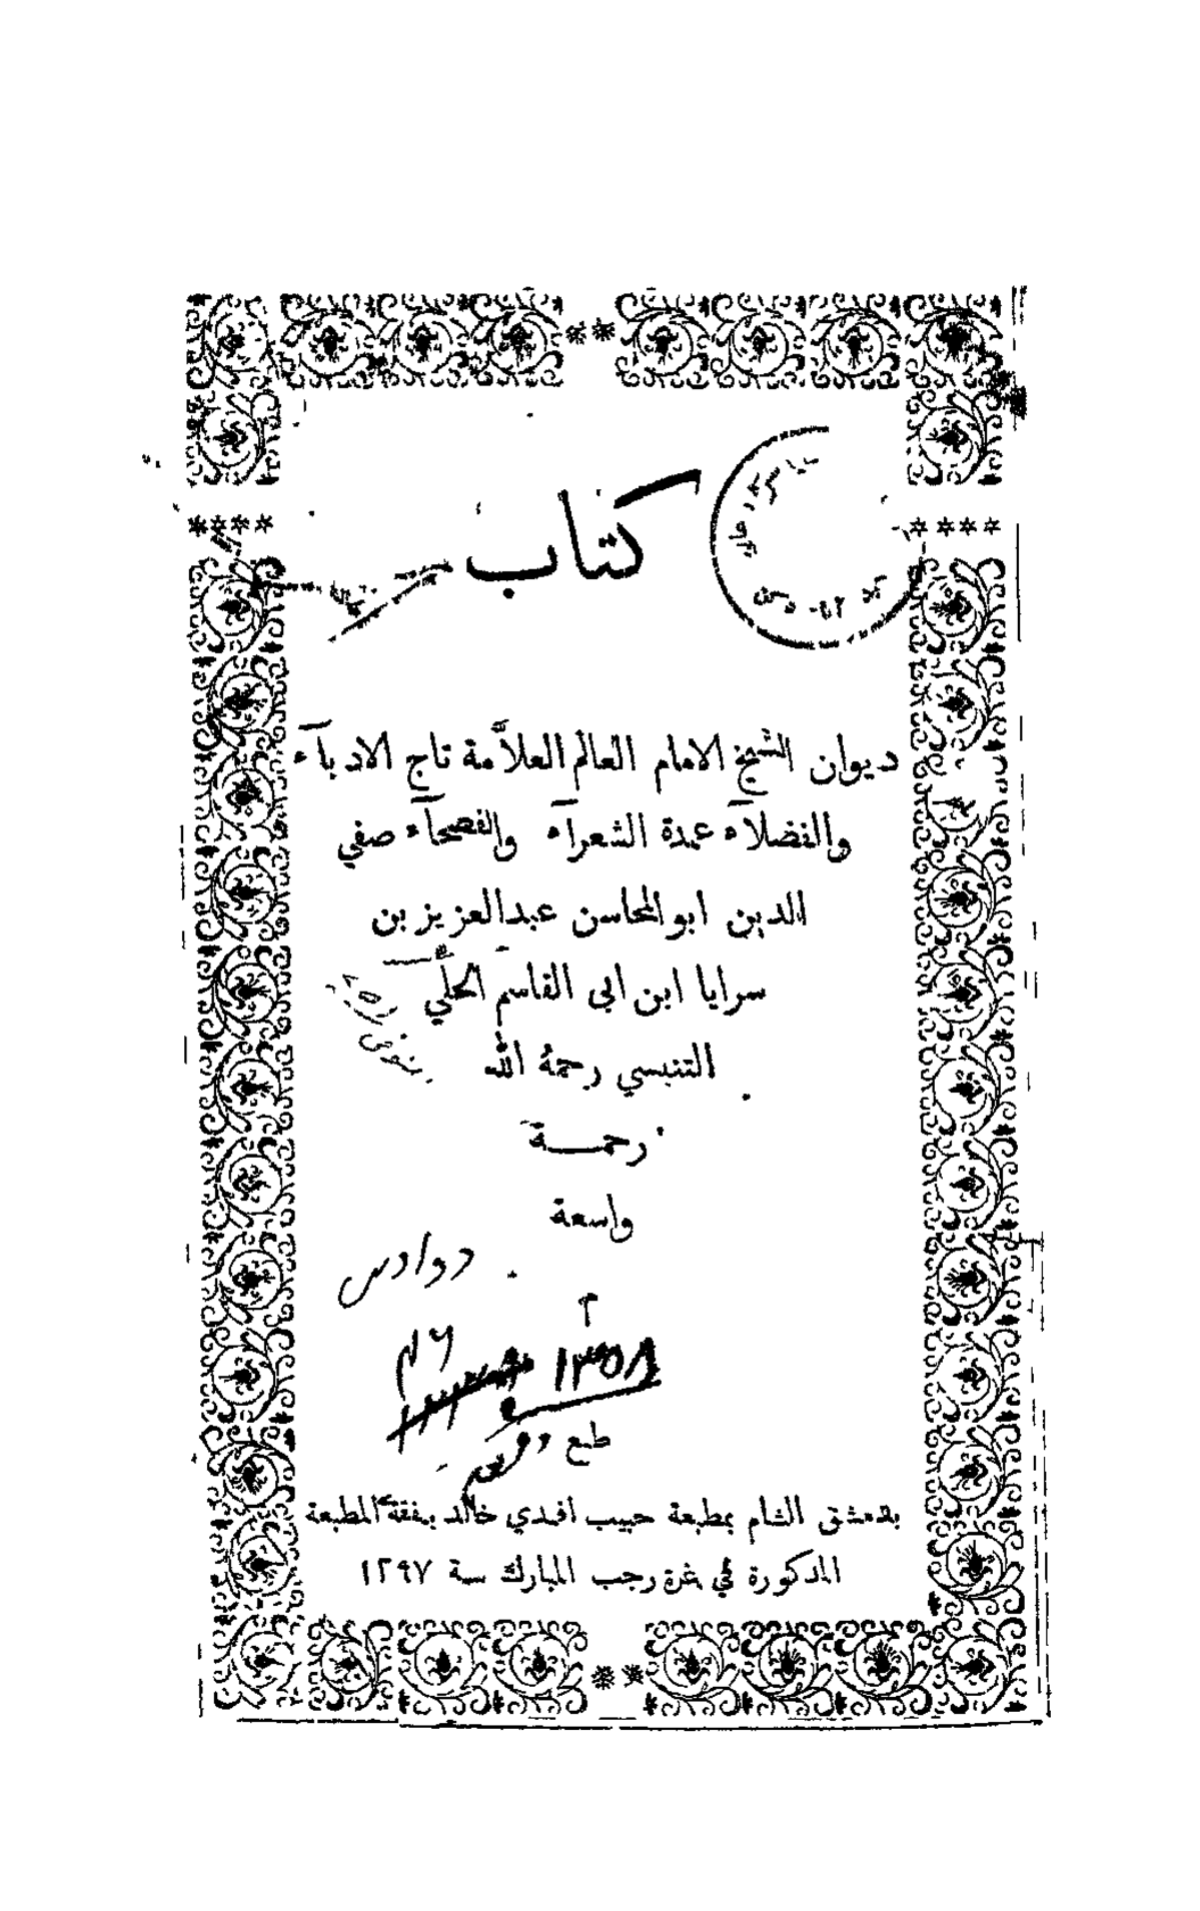 كتاب
ديوان الشيخ الامام العالم العلاَّمة تاج الادبآء
والفضلآء عمدة الشعرآء والفصحآء صفي
الدين ابو المحاسن عبد العزيز بن
سرايا ابن ابي القاسم الحلّي
التنبسي رحمهُ الله
رحمــة
واسعة
دوادس
١٣٥٨
طبع
بدمشق الشام بمطبعة حبيب افندي خالد بنفقة المطبعة
المذكورة في غرة رجب المبارك سنة ١٢٩٧